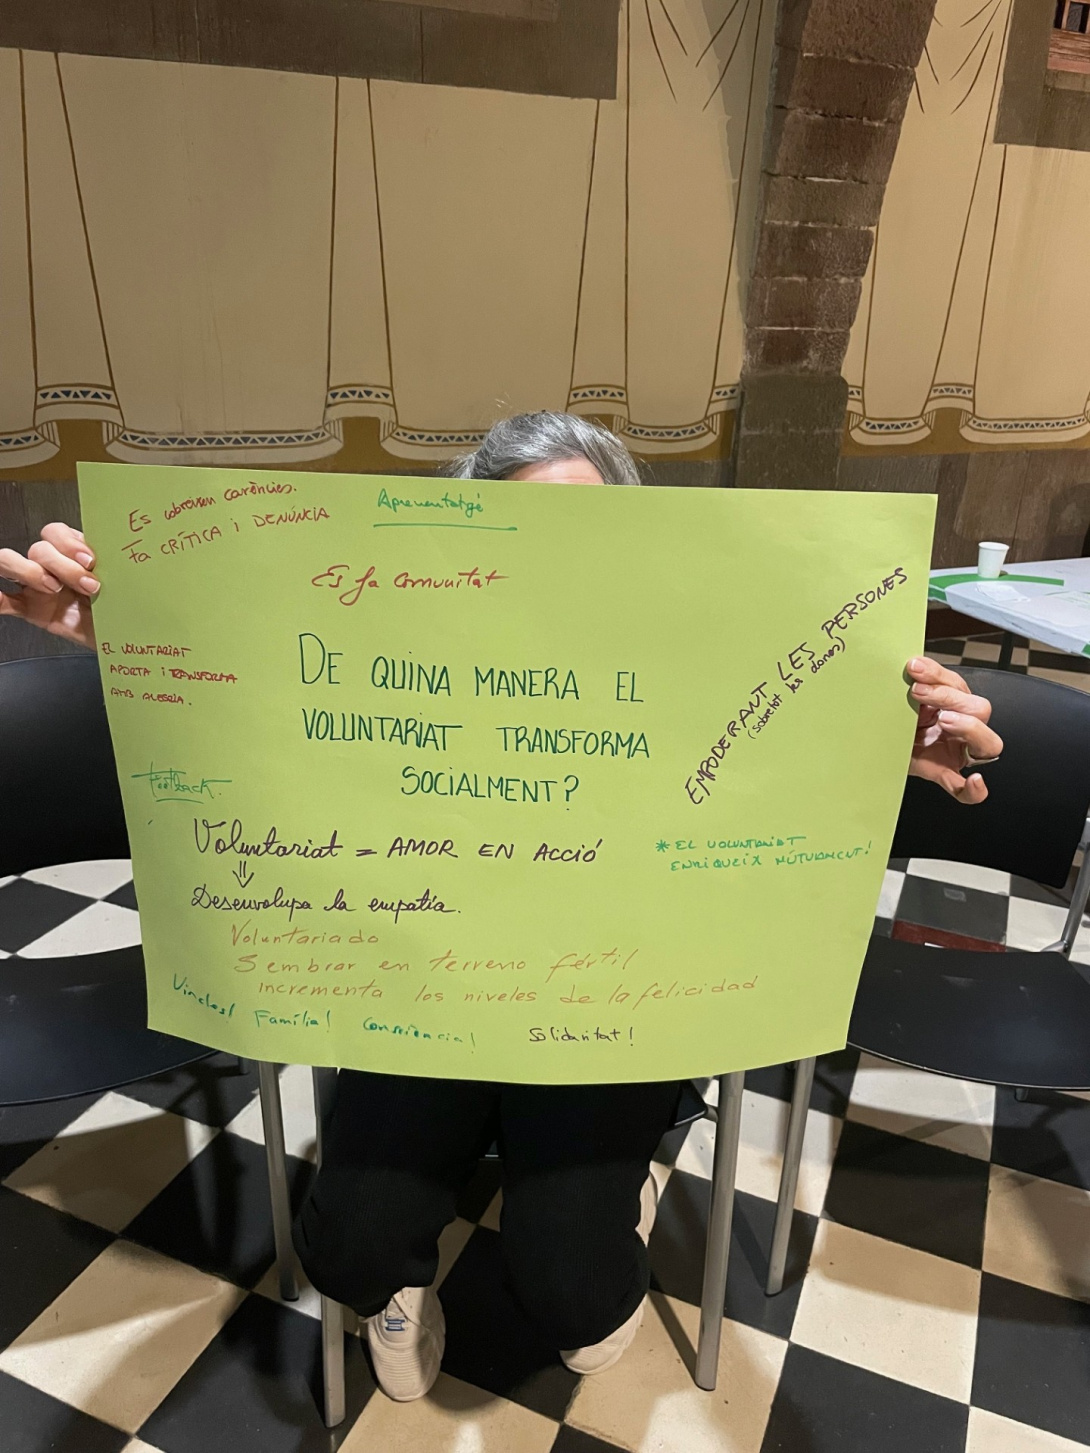 Es cobreixen carències.
Fa CRÍTICA i DENÚNCIA
Aprenentatge
Es fa comunitat
EL VOLUNTARIAT
APORTA i TRANSFORMA
AMB ALEGRIA.
DE QUINA MANERA EL
VOLUNTARIAT TRANSFORMA
SOCIALMENT?
EMPODERANT LES PERSONES
(sobretot les dones)
Feedback.
Voluntariat = AMOR EN ACCIÓ
⇓
Desenvolupa la empatía.
* EL VOLUNTARIAT
ENRIQUEIX MÚTUAMENT!
Voluntariado
Sembrar en terreno fértil
incrementa los niveles de la felicidad
Vincles!
Família!
Consciència!
Solidaritat!